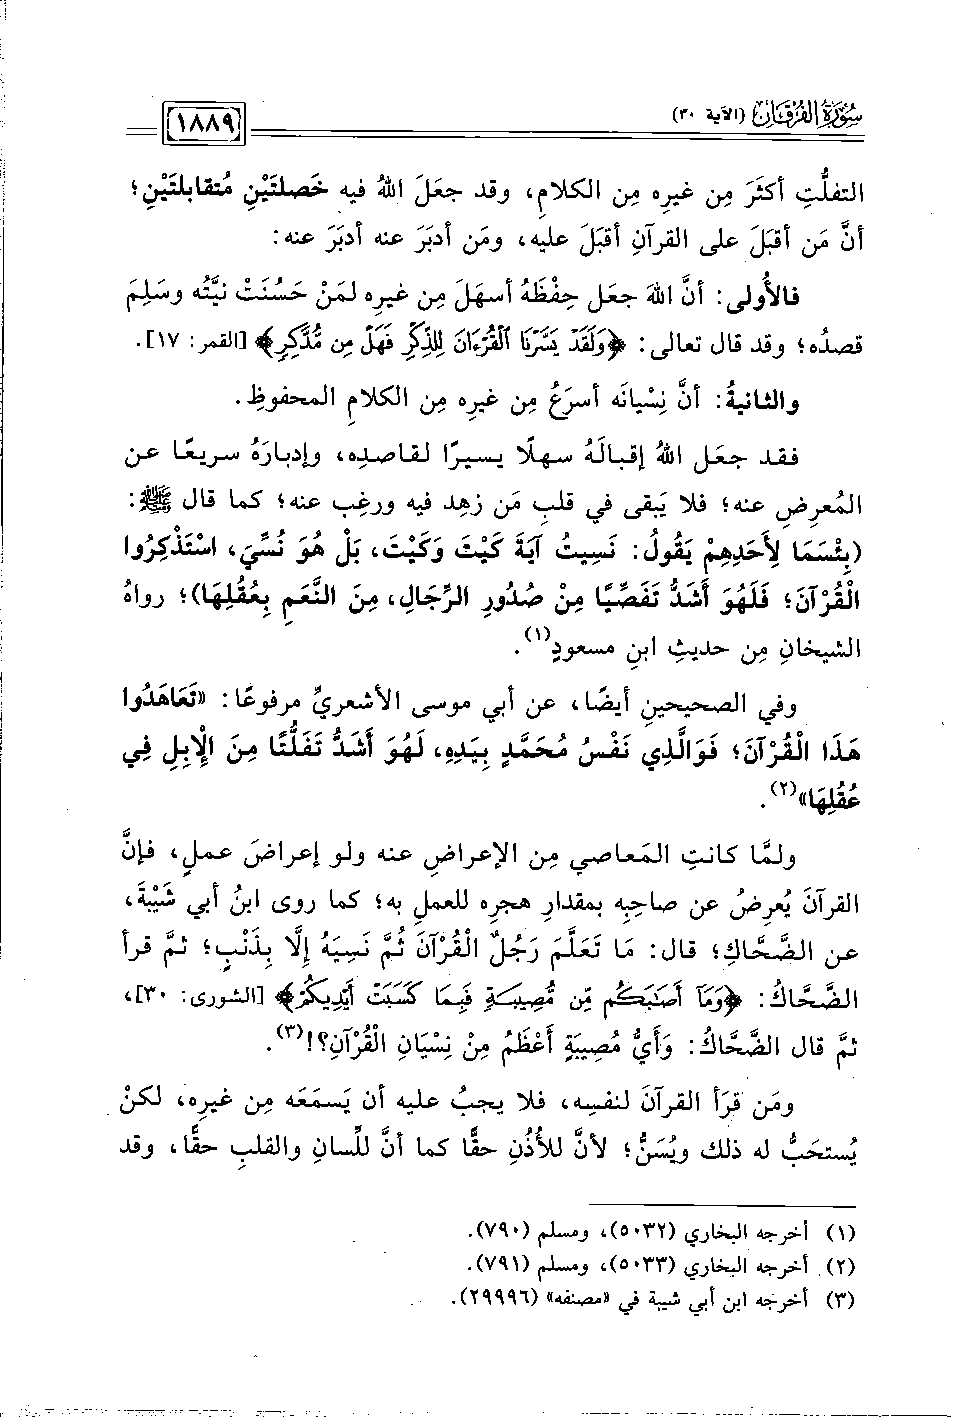 سُورَةُ الفُرْقَان (الآية ٣٠)
١٨٨٩
التفلُّتِ أكثَرَ مِن غيرِه مِن الكلامِ، وقد جعَلَ اللهُ فيه خَصلتَيْنِ مُتقابلتَيْنِ؛
أنَّ مَن أقبَلَ على القرآنِ أقبَلَ عليه، ومَن أدبَرَ عنه أدبَرَ عنه:
فالأُولى: أنَّ اللهَ جعَل حِفْظَهُ أسهَلَ مِن غيرِه لمَنْ حَسُنَتْ نيَّتُه وسَلِمَ
قصدُه؛ وقد قال تعالى: ﴿وَلَقَدْ يَسَّرْنَا ٱلْقُرْءَانَ لِلذِّكْرِ فَهَلْ مِن مُّدَّكِرٍ﴾ [القمر: ١٧].
والثانيةُ: أنَّ نِسْيانَه أسرَعُ مِن غيرِه مِن الكلامِ المحفوظِ.
فقد جعَل اللهُ إقبالَهُ سهلًا يسيرًا لقاصدِه، وإدبارَهُ سريعًا عن
المُعرِضِ عنه؛ فلا يَبقى في قلبِ مَن زهِد فيه ورغِب عنه؛ كما قال ﷺ:
(بِئْسَمَا لِأَحَدِهِمْ يَقُولُ: نَسِيتُ آيَةَ كَيْتَ وَكَيْتَ، بَلْ هُوَ نُسِّيَ، اسْتَذْكِرُوا
الْقُرْآنَ؛ فَلَهُوَ أَشَدُّ تَفَصِّيًا مِنْ صُدُورِ الرِّجَالِ، مِنَ النَّعَمِ بِعُقُلِهَا)؛ رواهُ
الشيخانِ مِن حديثِ ابنِ مسعودٍ(١).
وفي الصحيحينِ أيضًا، عن أبي موسى الأشعريِّ مرفوعًا: «تَعَاهَدُوا
هَذَا الْقُرْآنَ؛ فَوَالَّذِي نَفْسُ مُحَمَّدٍ بِيَدِهِ، لَهُوَ أَشَدُّ تَفَلُّتًا مِنَ الْإِبِلِ فِي
عُقُلِهَا»(٢).
ولمَّا كانتِ المَعاصي مِن الإعراضِ عنه ولو إعراضَ عملٍ، فإنَّ
القرآنَ يُعرِضُ عن صاحبِه بمقدارِ هجرِه للعملِ به؛ كما روى ابنُ أبي شَيْبةَ،
عن الضَّحَّاكِ؛ قال: مَا تَعَلَّمَ رَجُلٌ الْقُرْآنَ ثُمَّ نَسِيَهُ إِلَّا بِذَنْبٍ؛ ثمَّ قرأ
الضَّحَّاكُ: ﴿وَمَآ أَصَٰبَكُم مِّن مُّصِيبَةٍ فَبِمَا كَسَبَتْ أَيْدِيكُمْ﴾ [الشورى: ٣٠]،
ثمَّ قال الضَّحَّاكُ: وَأَيُّ مُصِيبَةٍ أَعْظَمُ مِنْ نِسْيَانِ الْقُرْآنِ؟!(٣).
ومَن قرَأ القرآنَ لنفسِه، فلا يجبُ عليه أن يَسمَعَه مِن غيرِه، لكنْ
يُستحَبُّ له ذلك ويُسَنُّ؛ لأنَّ للأُذُنِ حقًّا كما أنَّ للِّسانِ والقلبِ حقًّا، وقد
(١) أخرجه البخاري (٥٠٣٢)، ومسلم (٧٩٠).
(٢) أخرجه البخاري (٥٠٣٣)، ومسلم (٧٩١).
(٣) أخرجه ابن أبي شيبة في «مصنفه» (٢٩٩٩٦).